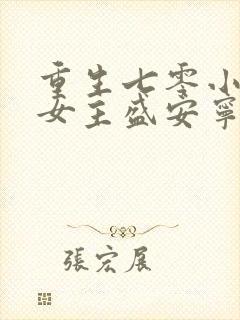 重生七零小
女主盛安寧
張宏展